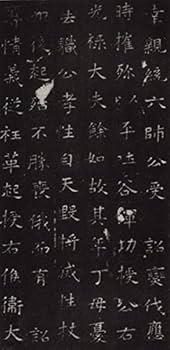 親統六師公受詔伐應
時摧殄以平吐谷渾功授公右
光祿大夫餘如故其年丁母憂
去職公孝性自天毀將滅性杖
而後起殆不勝喪俄而有詔
奪情義從革起授右候衛大